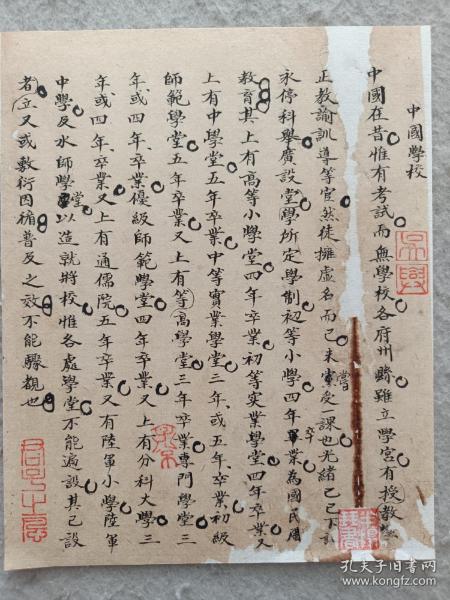 中國學校
中國在昔惟有考試而無學校各府州縣雖立學宮有授教學
正教諭訓導等官然徒擁虛名而已未嘗受一課也光緒己巳下詔
永停科舉廣設學堂所定學制初等小學四年卒業為國民
教育其上有高等小學堂四年卒業初等实業學堂四年卒業又
上有中學堂五年卒業中等實業學三年或五年卒業初級
師範學堂五年卒業又上有高等學堂三年卒業專門學堂三
年或四年卒業優級師範學堂四年卒業又上有分科大學三
年或四年卒業又上有通儒院五年卒業又有陸軍小學陸軍
中學及水師學堂以造就將校惟各處學堂不能遍設其已設
者立又或敷衍因循普及之效不能驟觀也
孔夫子旧书网
www.kongfz.com